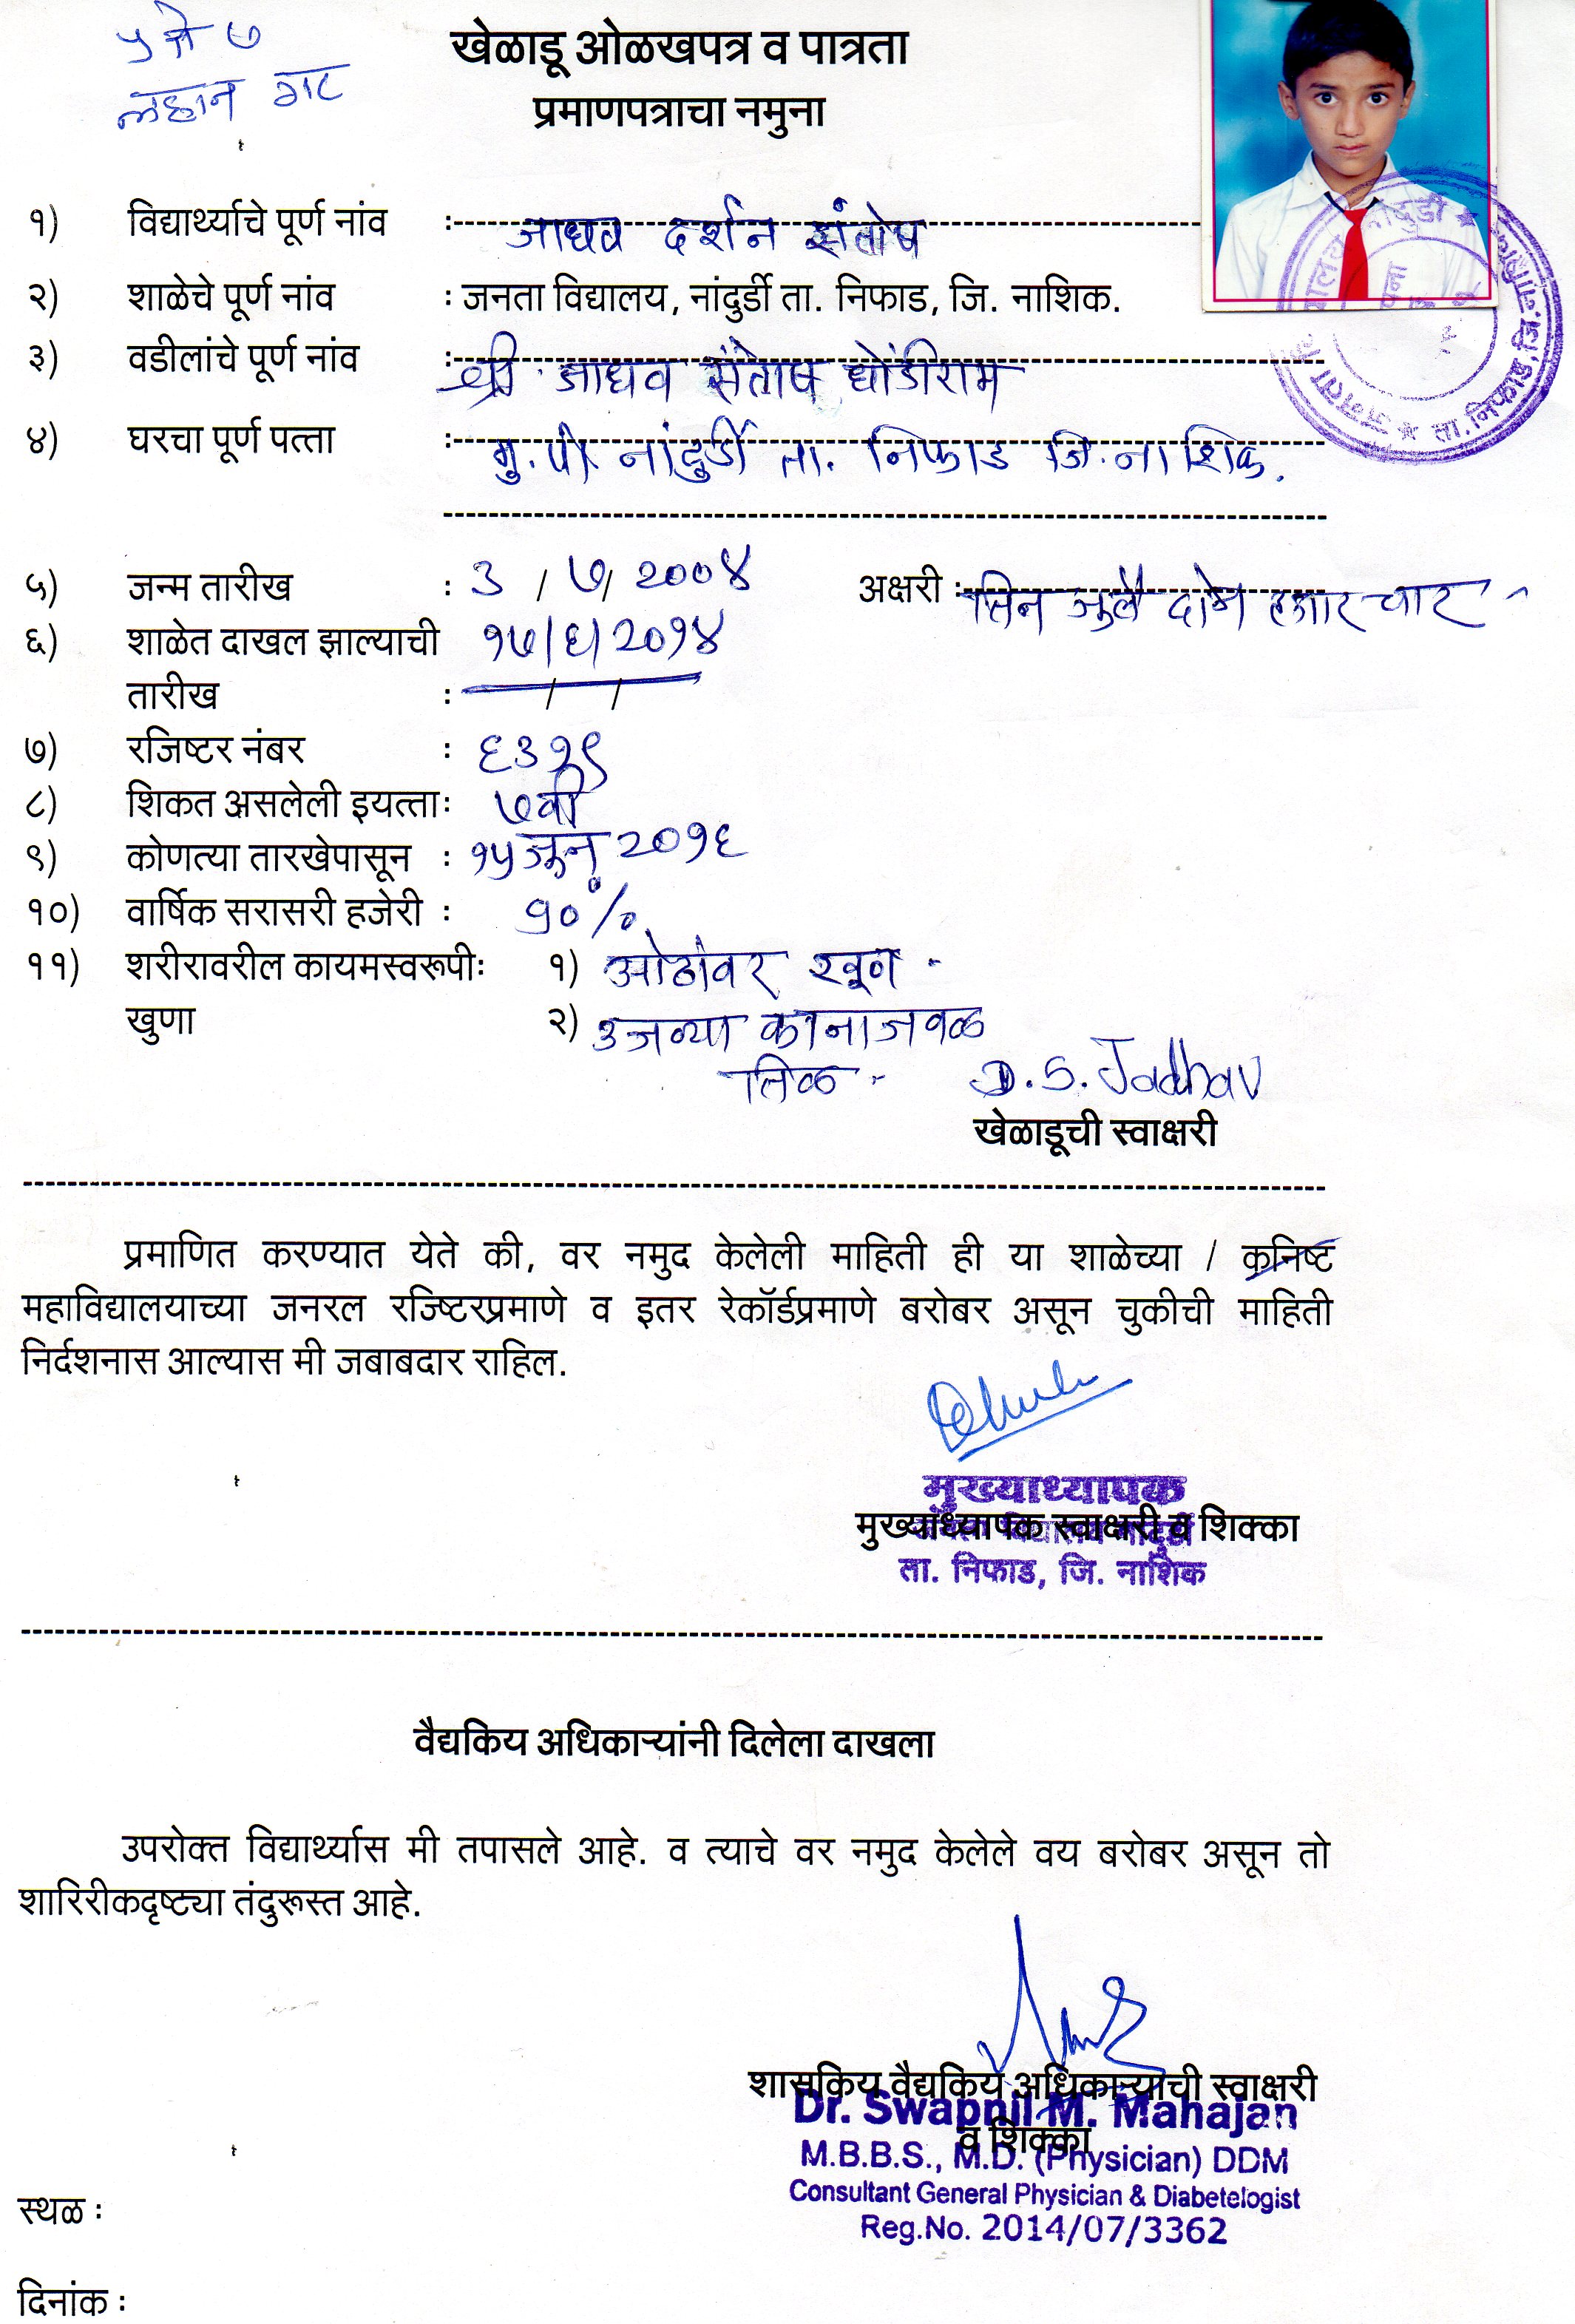 ५ ते ७
लहान गट
खेळाडू ओळखपत्र व पात्रता
प्रमाणपत्राचा नमुना
१) विद्यार्थ्याचे पूर्ण नांव : जाधव दर्शन संतोष
२) शाळेचे पूर्ण नांव : जनता विद्यालय, नांदुर्डी ता. निफाड, जि. नाशिक.
३) वडीलांचे पूर्ण नांव : श्री. जाधव संतोष धोंडीराम
४) घरचा पूर्ण पत्ता : मु. पो. नांदुर्डी ता. निफाड जि. नाशिक.
५) जन्म तारीख : 3 / ७ / २००४ अक्षरी : तिन जुलै दोन हजार चार
६) शाळेत दाखल झाल्याची १७/६/२०१४
तारीख : / /
७) रजिष्टर नंबर : ६३१९
८) शिकत असलेली इयत्ताः ७वी
९) कोणत्या तारखेपासून : १५ जून २०१६
१०) वार्षिक सरासरी हजेरी : ९०%
११) शरीरावरील कायमस्वरूपीः १) ओठांवर खूण
खुणा २) उजव्या कानाजवळ
तिळ
D. S. Jadhav
खेळाडूची स्वाक्षरी
प्रमाणित करण्यात येते की, वर नमुद केलेली माहिती ही या शाळेच्या / कनिष्ट
महाविद्यालयाच्या जनरल रज्ष्टिरप्रमाणे व इतर रेकॉर्डप्रमाणे बरोबर असून चुकीची माहिती
निर्दशनास आल्यास मी जबाबदार राहिल.
मुख्याध्यापक
मुख्याध्यापक स्वाक्षरी व शिक्का
ता. निफाड, जि. नाशिक
वैद्यकिय अधिकाऱ्यांनी दिलेला दाखला
उपरोक्त विद्यार्थ्यास मी तपासले आहे. व त्याचे वर नमुद केलेले वय बरोबर असून तो
शारिरीकदृष्ट्या तंदुरूस्त आहे.
शासकिय वैद्यकिय अधिकाऱ्याची स्वाक्षरी
Dr. Swapnil M. Mahajan
व शिक्का
M.B.B.S., M.D. (Physician) DDM
Consultant General Physician & Diabetelogist
Reg.No. 2014/07/3362
स्थळ :
दिनांक :